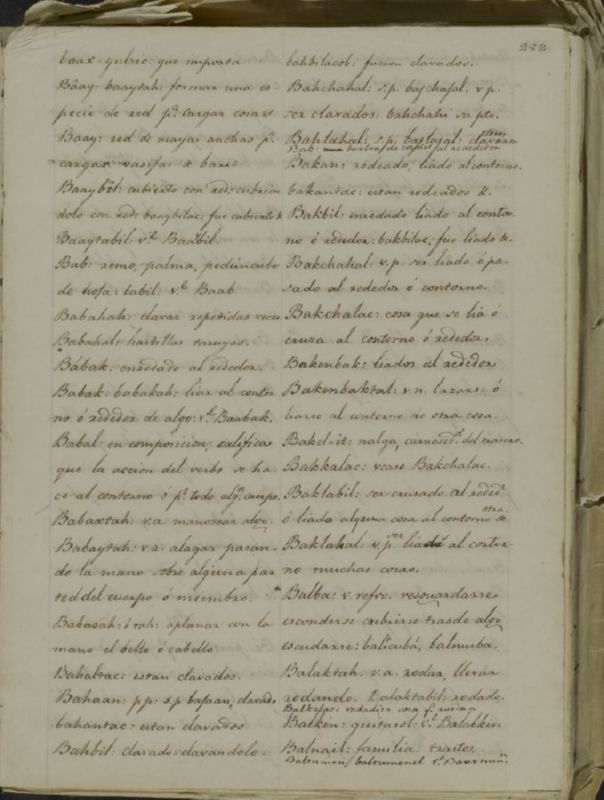 222
baax-yulric: que importa
Bâay: baaytah formar una es-
pecie de red pa. cargar cosas
Baay: red de mayas anchas pa.
cargar vasijas de barro
Baaybil: cubierto con red, cubrien
dolo con red: baaybilac: fue cubierto &
Baaytabil: ve. Baabil.
Bab: remo, palma, pedúnculo
de hoja: babil: ve. Baab
Babahah: clavar repetidas veces
Babahal: hartillar
Bábak: enredado al rededor.
Babak: babakah: liar al contor
no ó rededor de algo: ve. Baabak.
Babal: en composicion, califica
que la accion del verbo se ha-
ce al contorno ó pr. todo algn. cuerpo.
Babaxtah: v.a. manosear algo.
Babaytah: v.a. alagar pasan-
do la mano sobre alguna par
te del cuerpo ó miembro.
Babasah: i tah: aplanar con la
mano el bello ó cabello.
Bahalrac: estan clavados.
Bahaan: p.p. s.p. bajaan, clavado
bahantac: estan clavados
Bahbil: clavado: clavandolo.
bahbilacob: fueron clavados.
Bahchahal: s.p. bajchajal: v.p.
ser clavados: bahchahi su pto.
Bahtahal: s.p. bajtajal: clavarse
Bakan: rodeado, liado al contorno.
bakantac: estan rodeados &.
Bakbil: enredado liado al contor-
no ó rededor: bakbilac, fue liado &.
Bakchahal: v.p. ser liado ó pa-
sado al rededor ó contorno.
Bakchalac: cosa que se lia ó
cruza al contorno ó rededor.
Bakenbak: liados al rededor
Bakenbaktal: v.n. lazarse ó
liarse al contorno de otra cosa.
Bakel-it: nalga, carnosidd. del trasero.
Bakkalac: vease Bakchalac.
Baktabil: ser cruzado al reder.
ó liada alguna cosa al contorno de otra
Baktahal: v.p. ser liado al contor-
no muchas cosas.
Balba: v. refvo. resguardarse
esconderse cubrirse tras de algo
escudarse: balicubá, balnuba.
Balaktah: v.a. rodar, llevar
rodando. Balaktabil: rodado.
Balkalac: rodadiza cosa qe. rueda
Balkin: guitarol: ve. Balabkin
Balnail: familia: trastes.
Balnumen/ balnumenel ve.